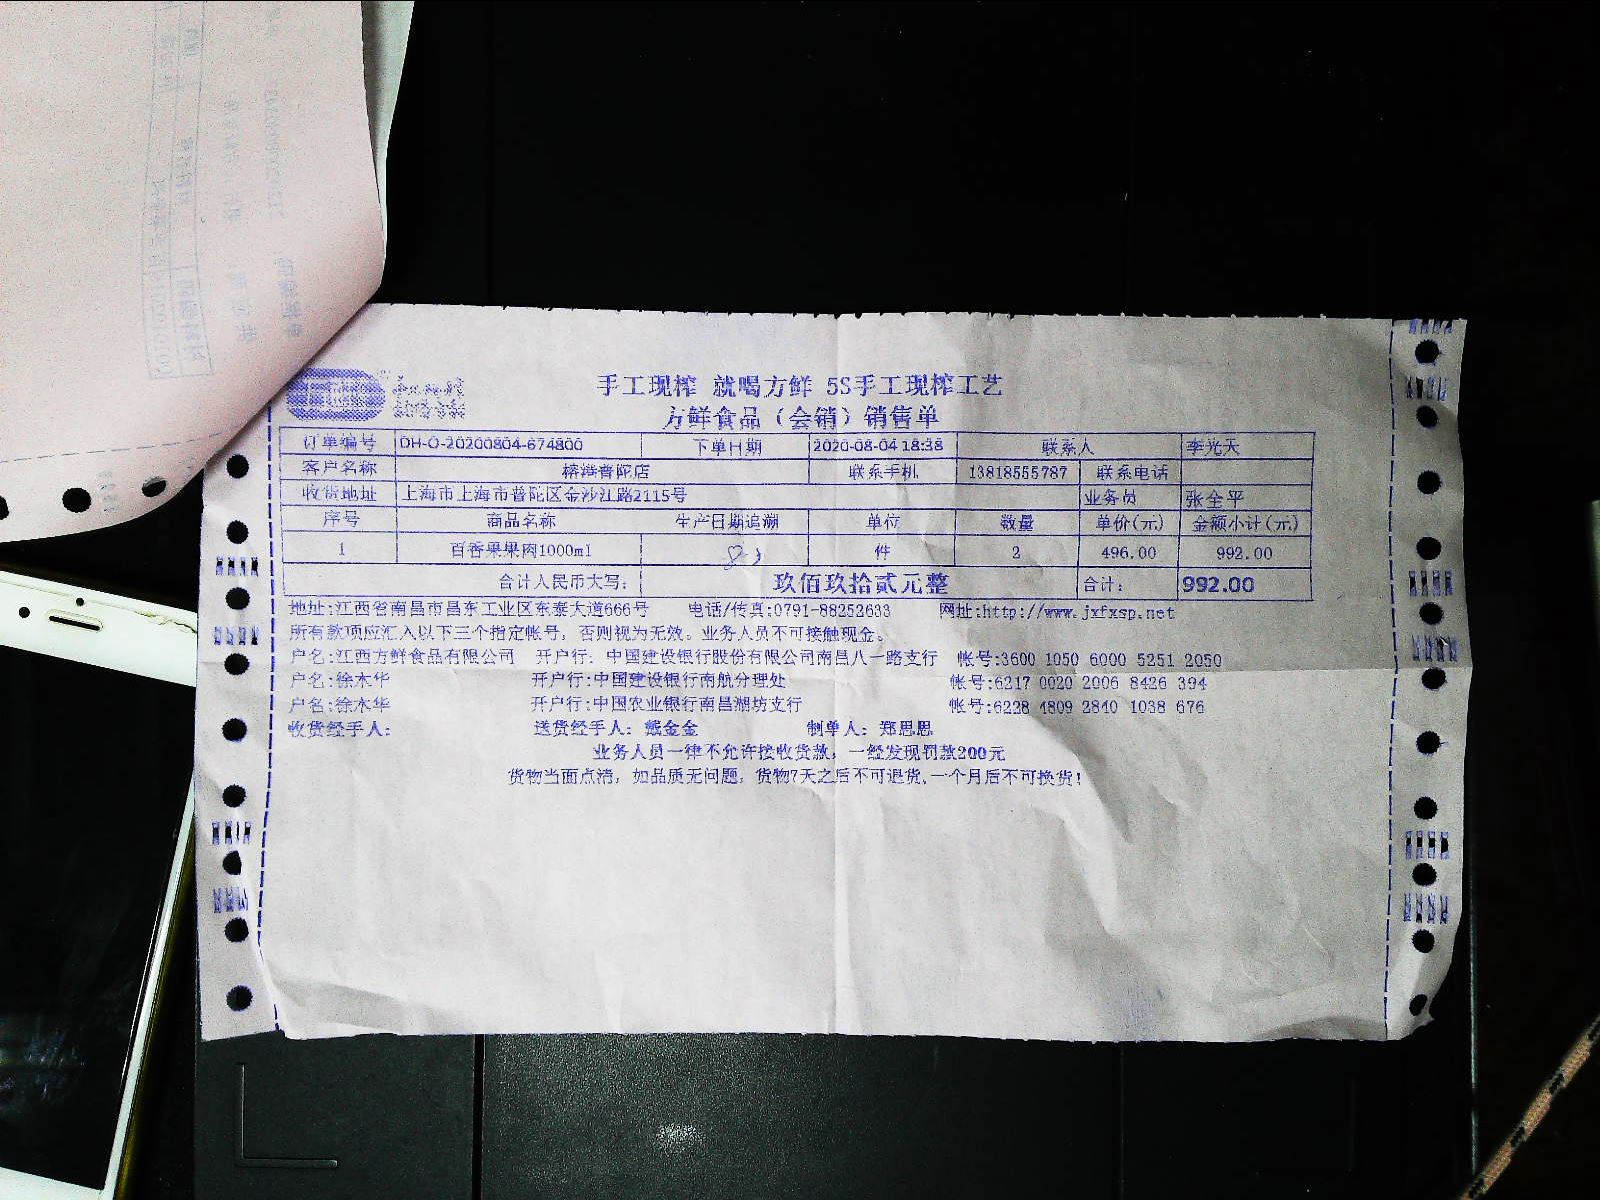 手工现榨 就喝方鲜 5S手工现榨工艺
方鲜食品（会销）销售单
订单编号 DH-O-20200804-674800 下单日期 2020-08-04 18:38 联系人 李光天
客户名称 榕港普陀店 联系手机 13818555787 联系电话
收货地址 上海市上海市普陀区金沙江路2115号 业务员 张全平
序号 商品名称 生产日期追溯 单位 数量 单价(元) 金额小计(元)
1 百香果果肉1000ml 件 2 496.00 992.00
合计人民币大写： 玖佰玖拾贰元整 合计： 992.00
地址:江西省南昌市昌东工业区东泰大道666号 电话/传真:0791-88252633 网址:http://www.jxfxsp.net
所有款项应汇入以下三个指定帐号，否则视为无效。业务人员不可接触现金。
户名:江西方鲜食品有限公司 开户行: 中国建设银行股份有限公司南昌八一路支行 帐号:3600 1050 6000 5251 2050
户名:徐木华 开户行:中国建设银行南航分理处 帐号:6217 0020 2006 8426 394
户名:徐木华 开户行:中国农业银行南昌湖坊支行 帐号:6228 4809 2840 1038 676
收货经手人: 送货经手人: 戴金金 制单人: 郑思思
业务人员一律不允许接收货款，一经发现罚款200元
货物当面点清，如品质无问题，货物7天之后不可退货,一个月后不可换货!